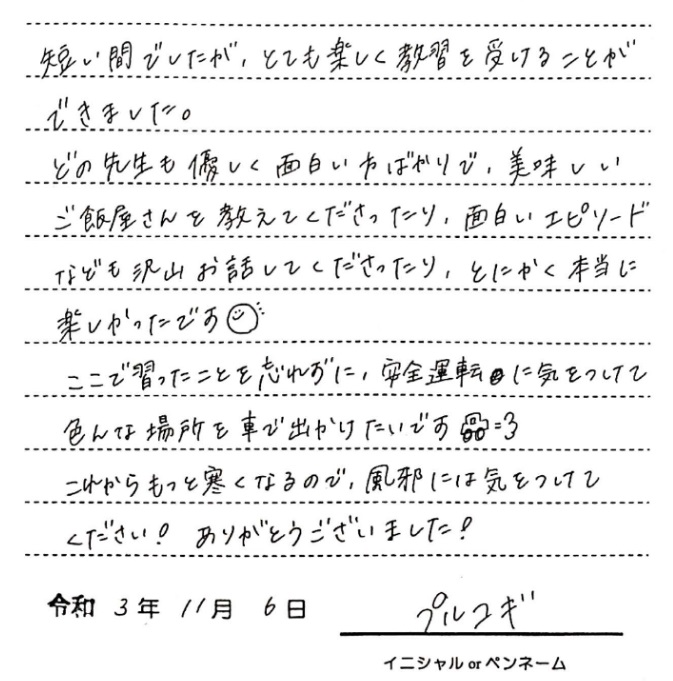 短い間でしたが、とても楽しく教習を受けることが
できました。
どの先生も優しく面白い方ばかりで、美味しい
ご飯屋さんを教えてくださったり、面白いエピソード
なども沢山お話してくださったり、とにかく本当に
楽しかったです
ここで習ったことを忘れずに、安全運転に気をつけて
色んな場所を車で出かけたいです =3
これからもっと寒くなるので、風邪には気をつけて
ください! ありがとうございました!
令和 3年 11月 6日
プルコギ
イニシャル or ペンネーム